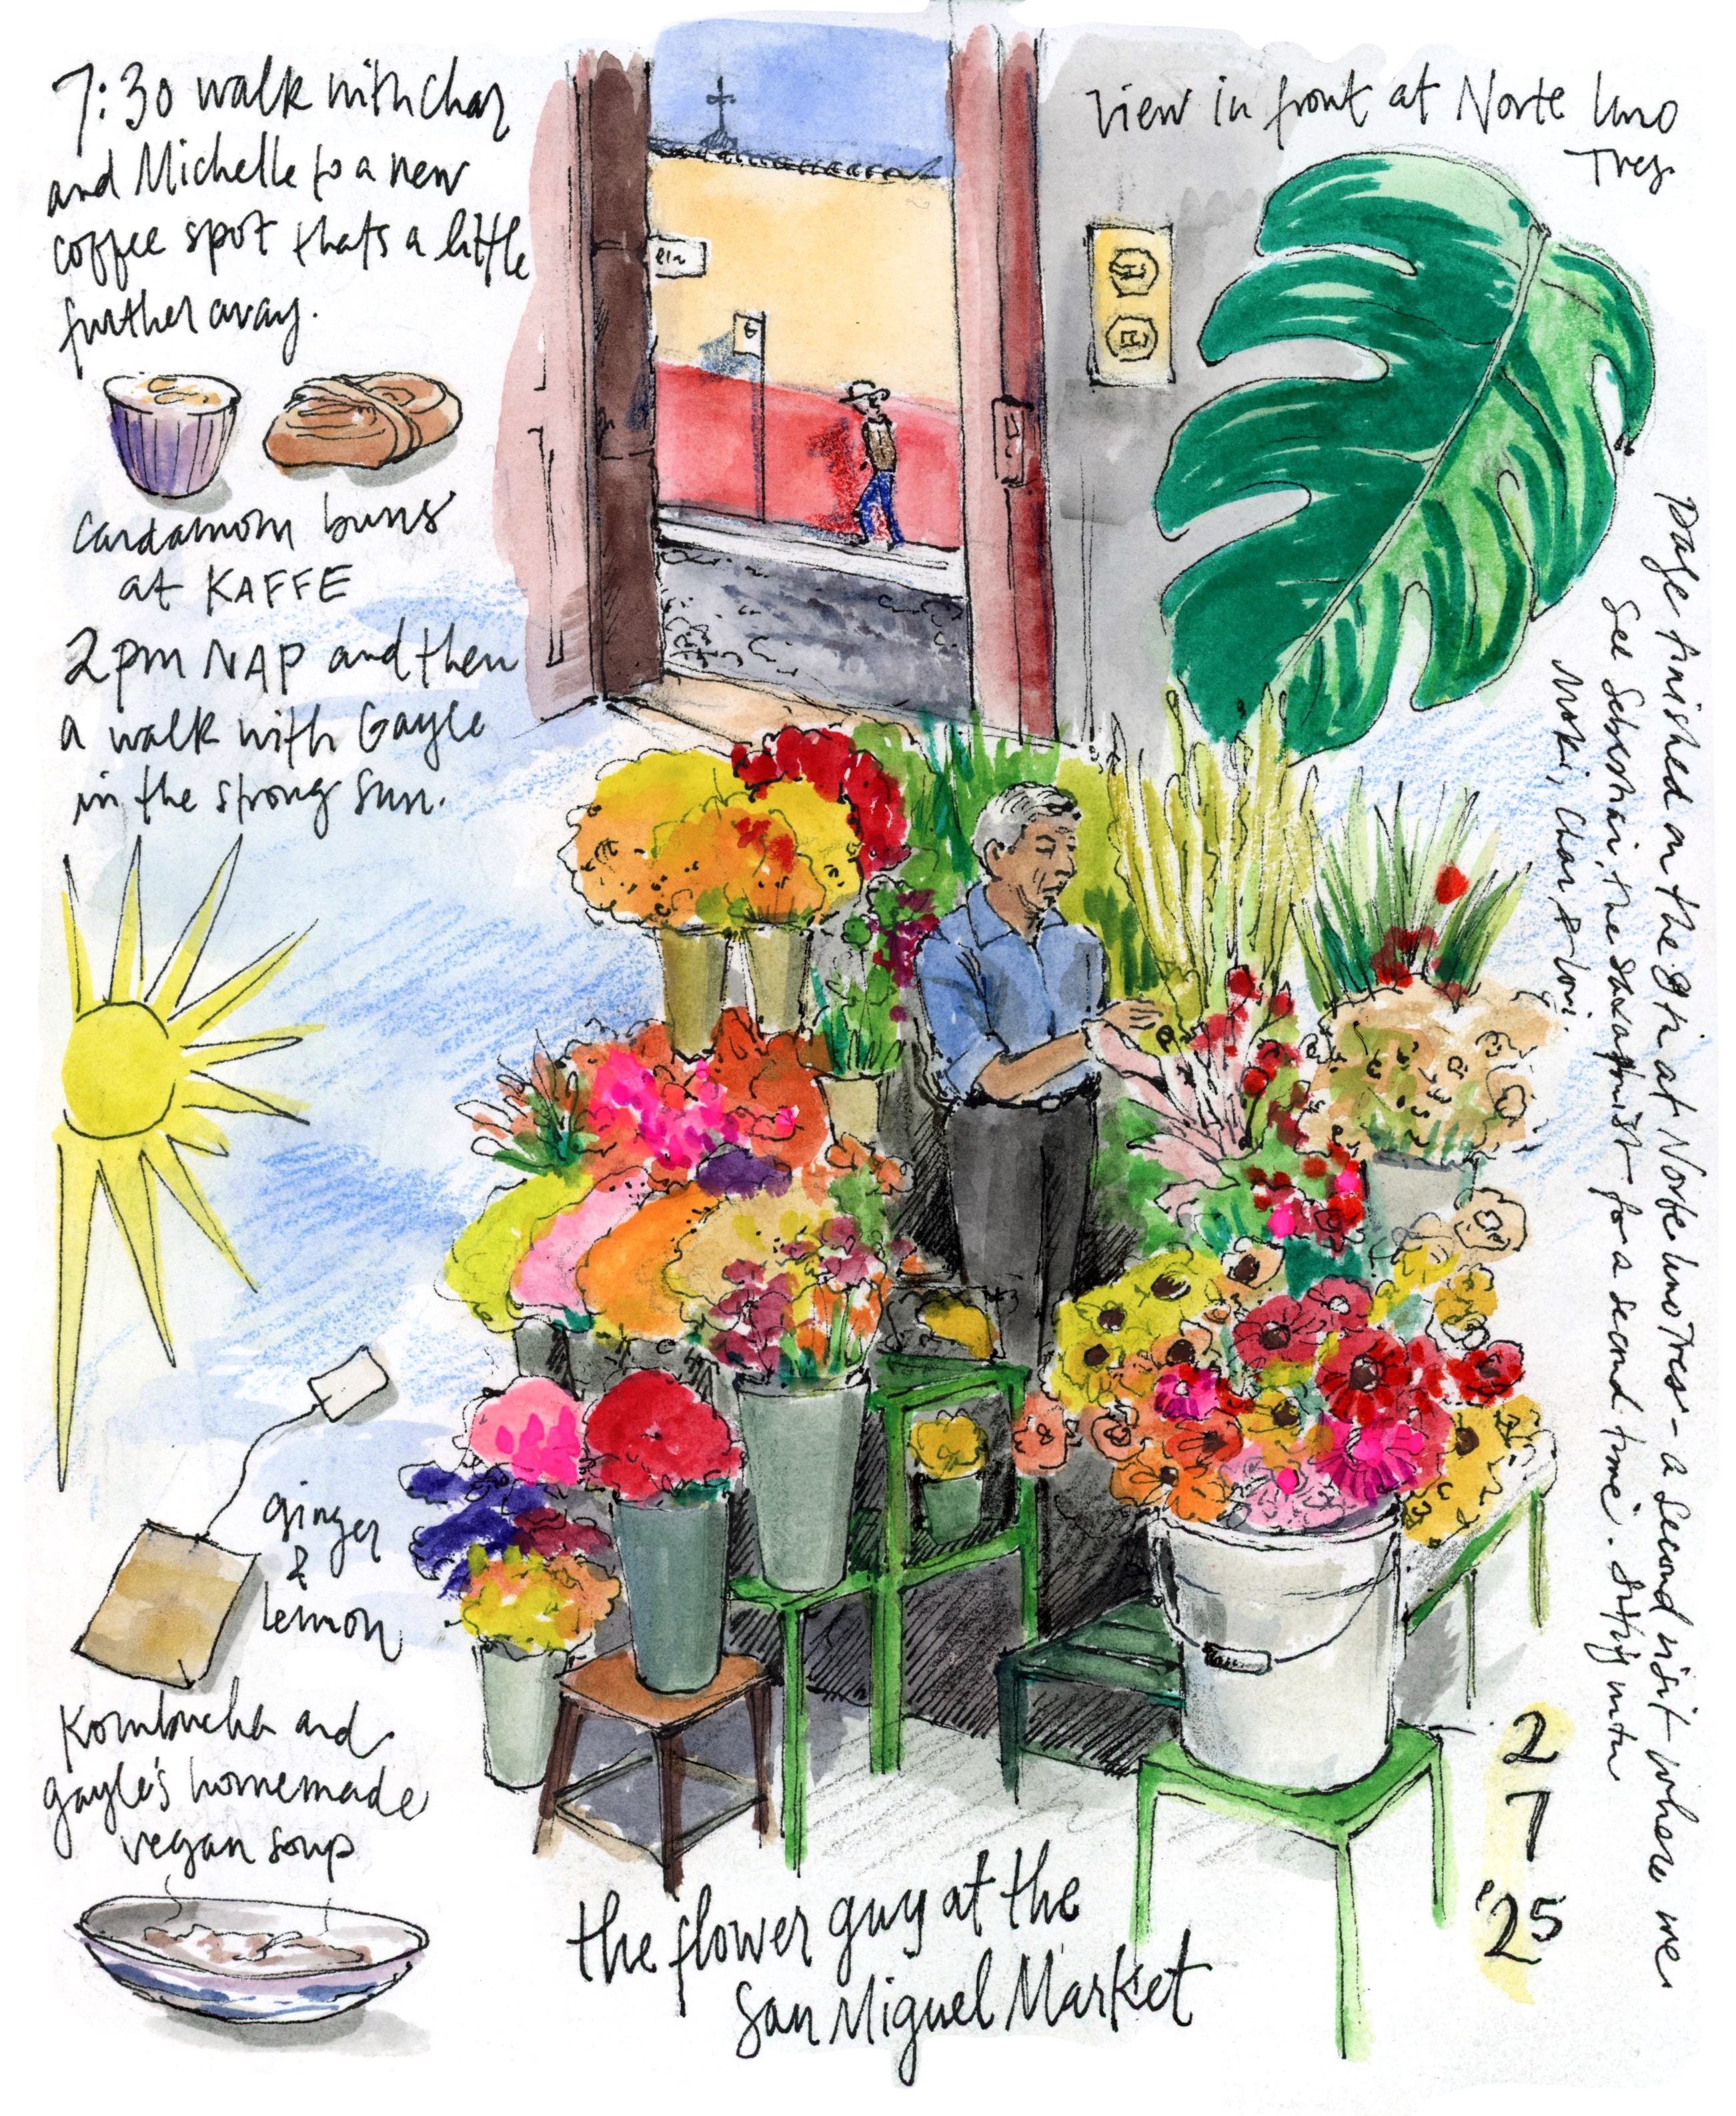 7:30 walk with Char
and Michelle to a new
coffee spot thats a little
further away.
cardamom buns
at KAFFE
2pm NAP and then
a walk with Gayle
in the strong sun.
ginger
&
lemon
Kombucha and
gayle's homemade
vegan soup
View in front at Norte Uno
Tres
the flower guy at the
San Miguel Market
Page finished on the 9th at Norte Uno Tres - a second visit where we
see Sebastian, the saxaphonist for a second time. Sitting with
Moki, Char & Lori.
2
7
'25